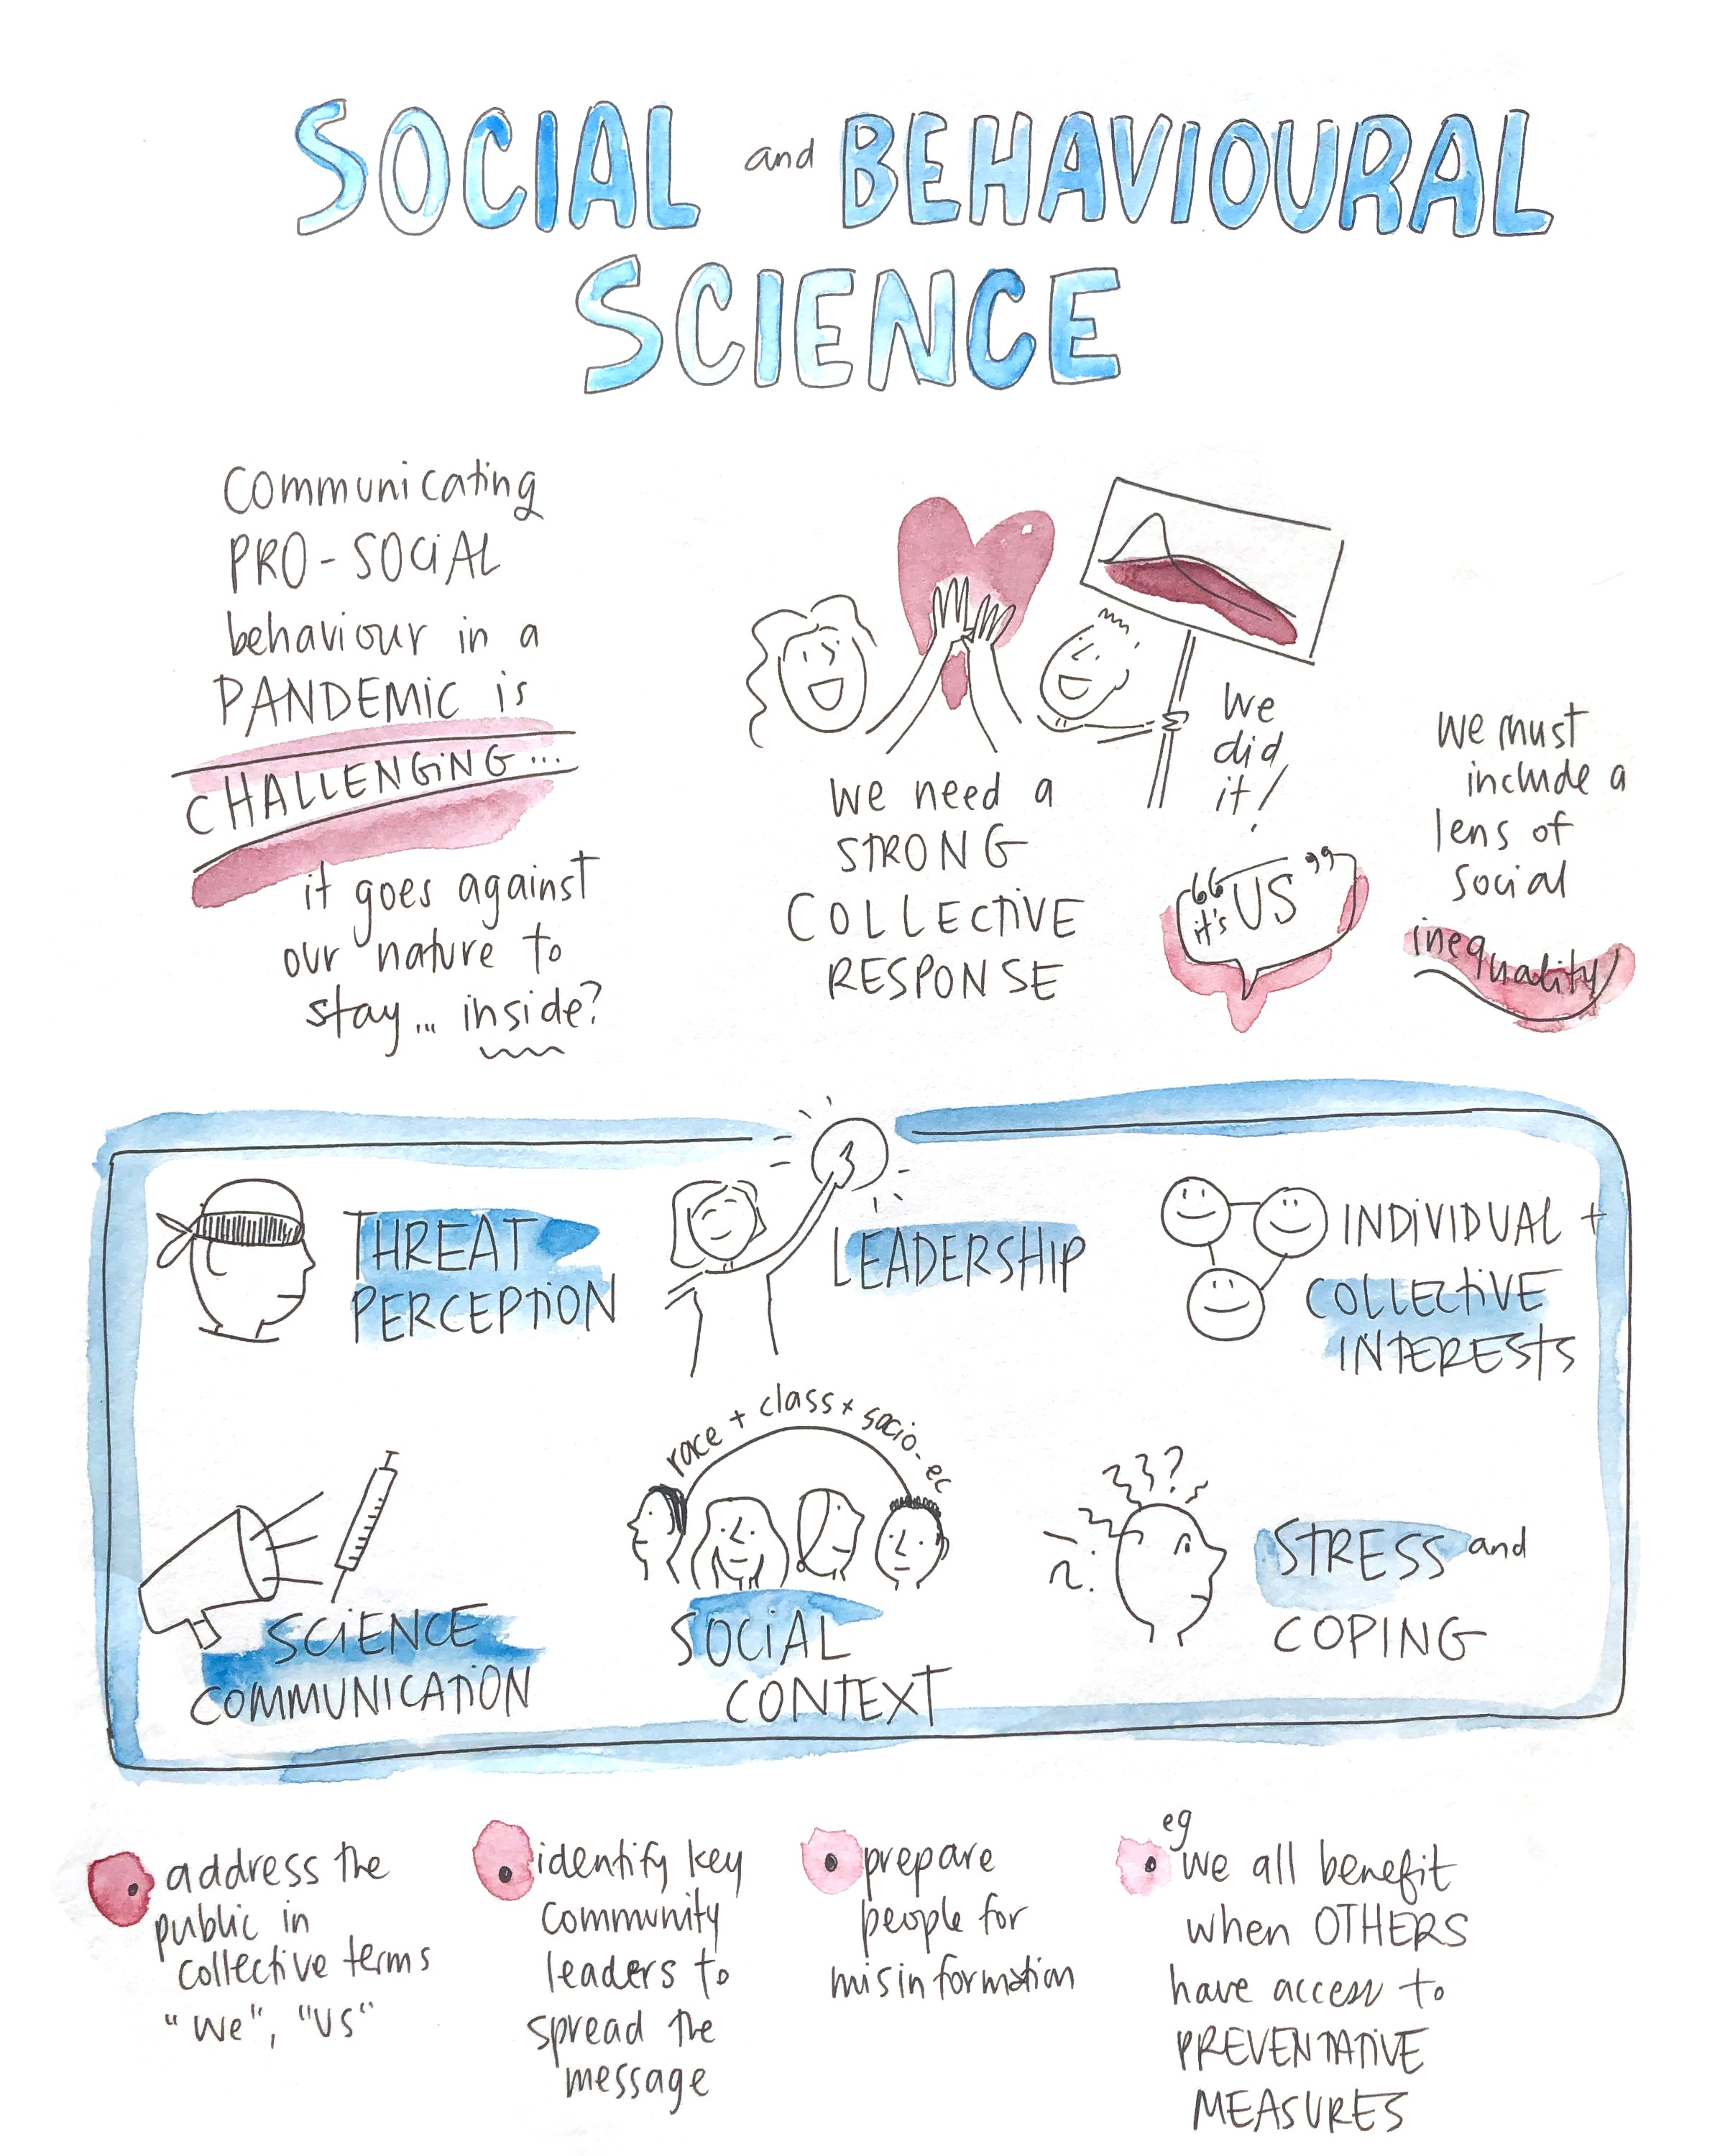 SOCIAL and BEHAVIOURAL
SCIENCE
Communicating
PRO-SOCIAL
behaviour in a
PANDEMIC is
CHALLENGING...
it goes against
our nature to
stay... inside?
We did it!
We need a
STRONG
COLLECTIVE
RESPONSE
"it's US"
We must
include a
lens of
social
inequality
THREAT
PERCEPTION
LEADERSHIP
INDIVIDUAL +
COLLECTIVE
INTERESTS
SCIENCE
COMMUNICATION
race + class + socio-ec
SOCIAL
CONTEXT
???
?
STRESS and
COPING
address the
public in
collective terms
"We", "US"
identify key
community
leaders to
spread the
message
prepare
people for
misinformation
eg
We all benefit
when OTHERS
have access to
PREVENTATIVE
MEASURES